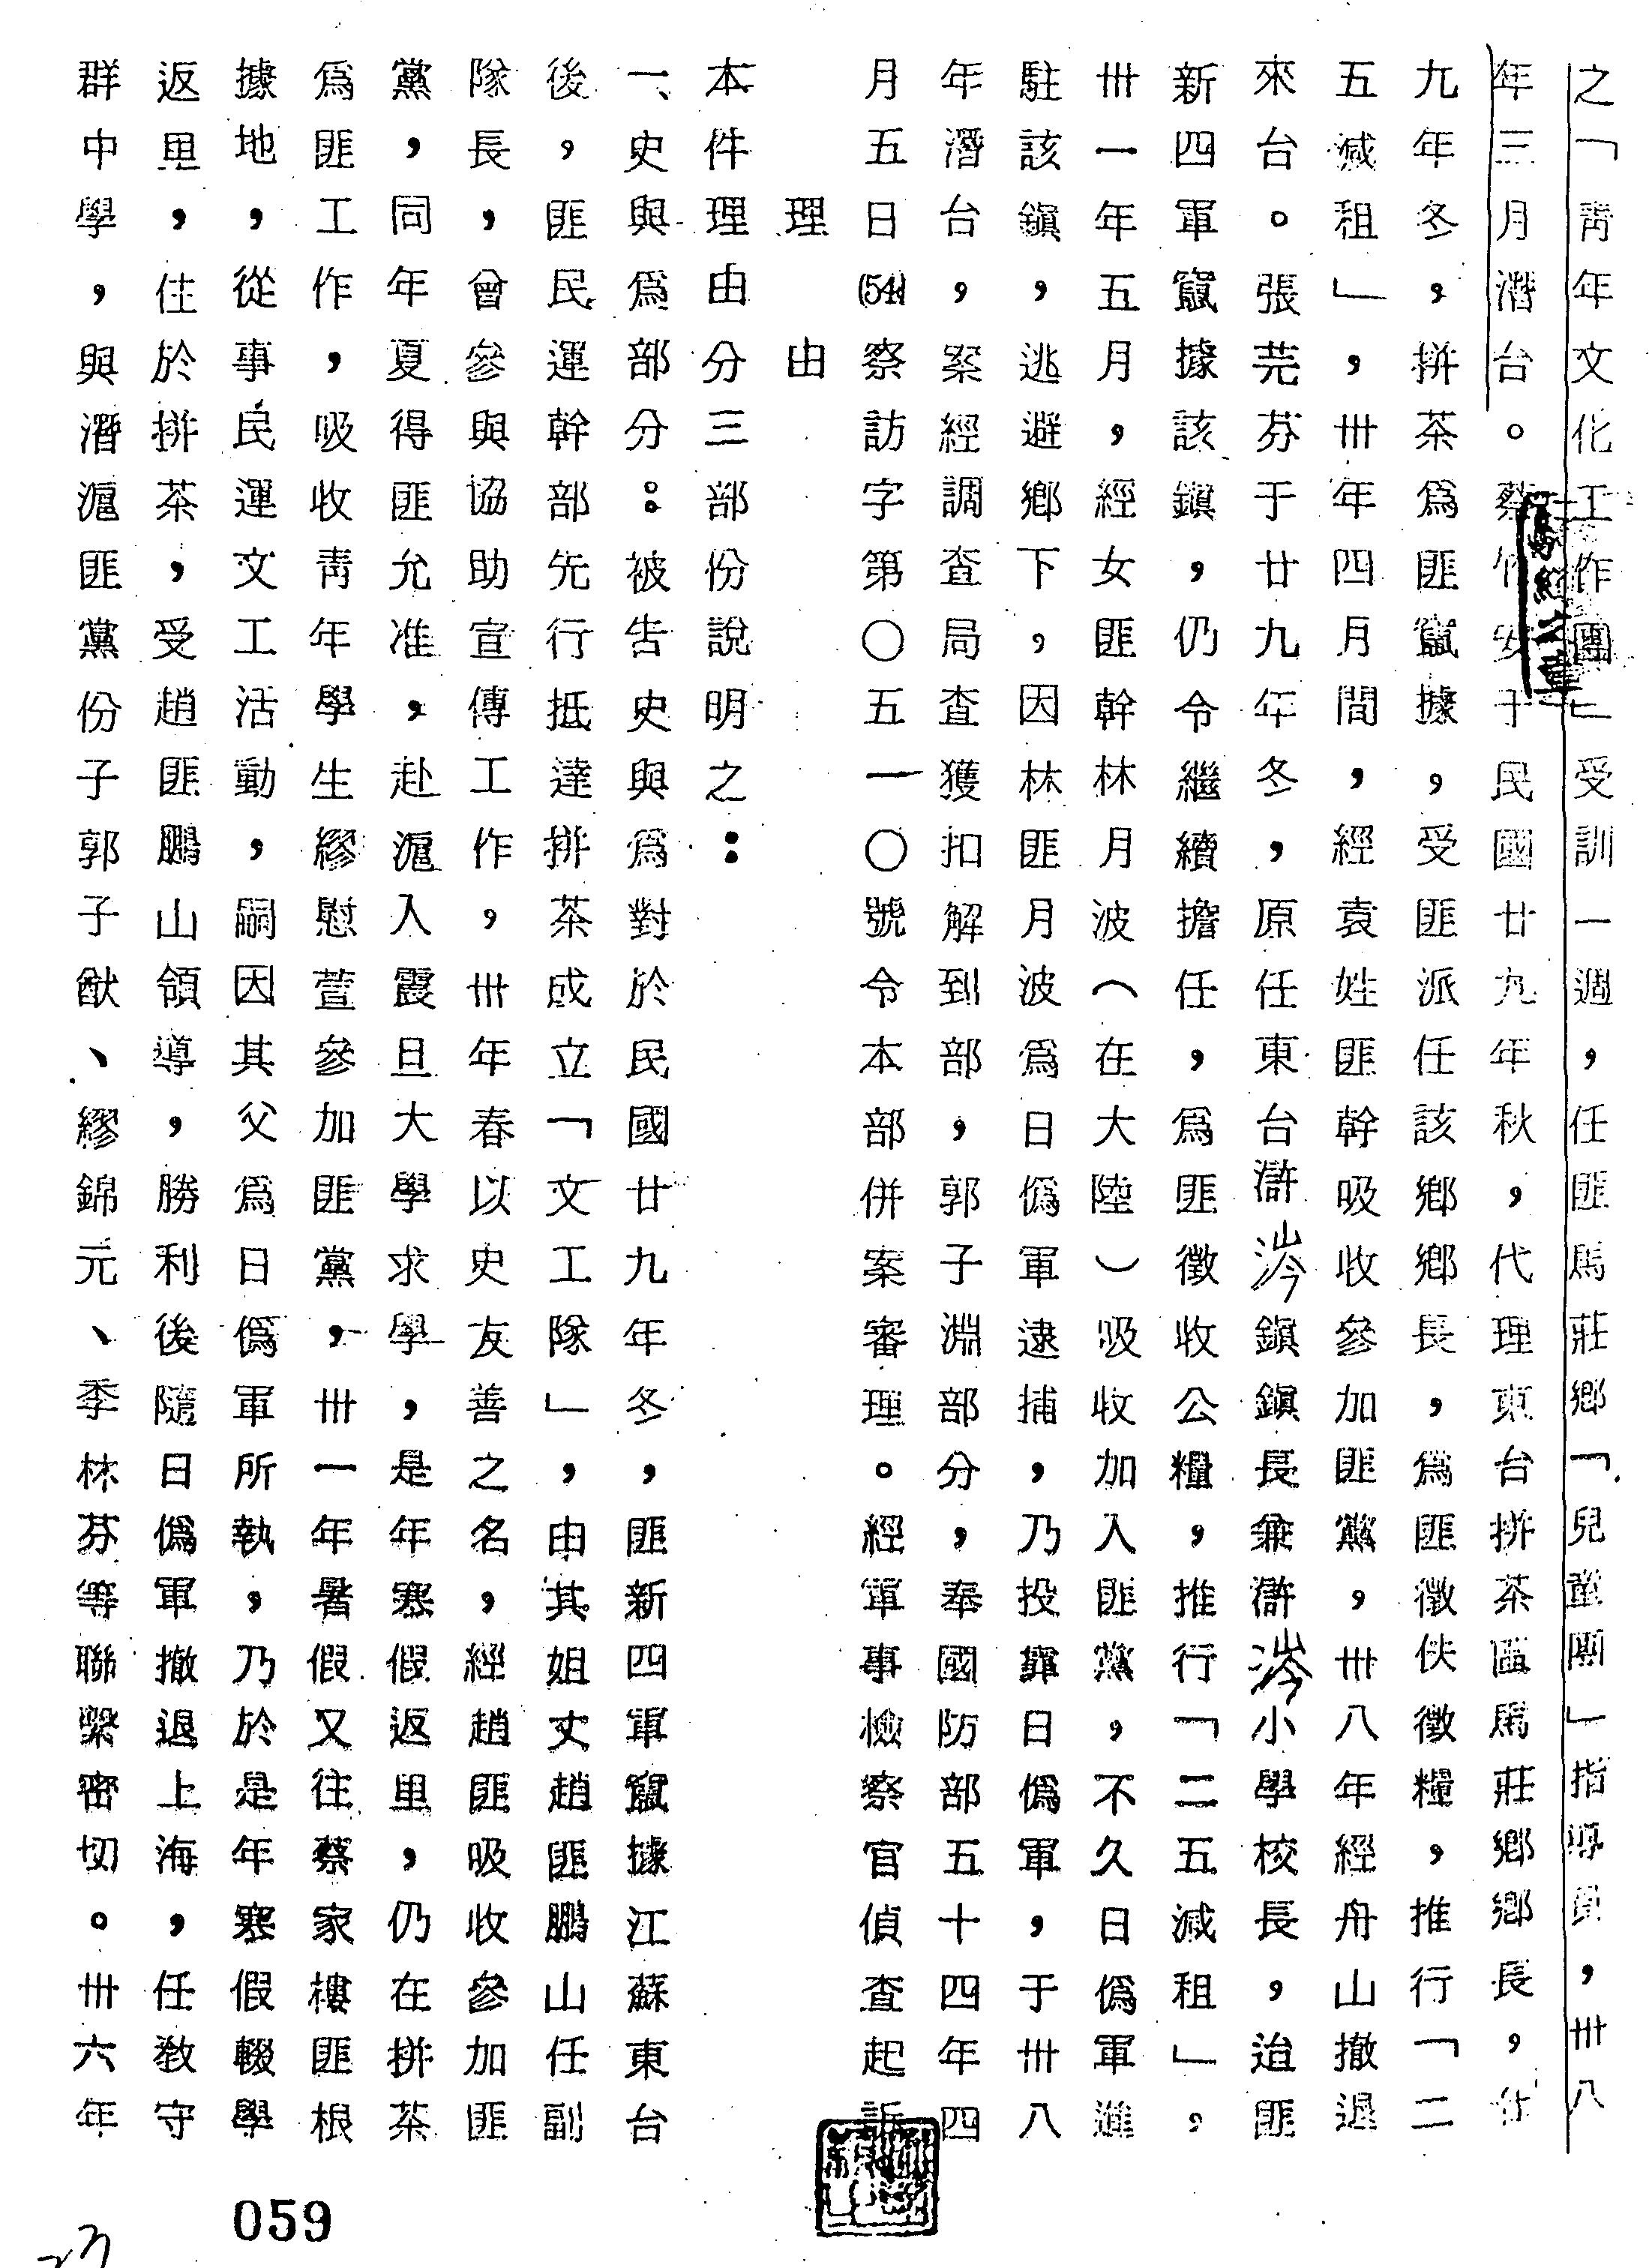 之「青年文化工作團」受訓一週，任匪馬莊鄉「兒童團」指導員，卅八
年三月潛台。蔡竹安于民國廿九年秋，代理東台拼茶區馬莊鄉鄉長，廿
九年冬，拼茶為匪竄據，受匪派任該鄉鄉長，為匪徵伕徵糧，推行「二
五減租」，卅年四月間，經袁姓匪幹吸收參加匪黨，卅八年經舟山撤退
來台。張芫芬于廿九年冬，原任東台滸涔鎮鎮長兼滸涔小學校長，迨匪
新四軍竄據該鎮，仍令繼續擔任，為匪徵收公糧，推行「二五減租」，
卅一年五月，經女匪幹林月波（在大陸）吸收加入匪黨，不久日偽軍進
駐該鎮，逃避鄉下，因林匪月波為日偽軍逮捕，乃投靠日偽軍，于卅八
年潛台，案經調查局查獲扣解到部，郭子淵部分，奉國防部五十四年四
月五日(54)察訪字第〇五一〇號令本部併案審理。經軍事檢察官偵查起訴
理由
本件理由分三部份說明之：
一、史與為部分：被告史與為對於民國廿九年冬，匪新四軍竄據江蘇東台
後，匪民運幹部先行抵達拼茶成立「文工隊」，由其姐丈趙匪鵬山任副
隊長，曾參與協助宣傳工作，卅年春以史友善之名，經趙匪吸收參加匪
黨，同年夏得匪允准，赴滬入震旦大學求學，是年寒假返里，仍在拼茶
為匪工作，吸收青年學生繆慰萱參加匪黨，卅一年暑假又往蔡家樓匪根
據地，從事民運文工活動，嗣因其父為日偽軍所執，乃於是年寒假輟學
返里，住於拼茶，受趙匪鵬山領導，勝利後隨日偽軍撤退上海，任教守
群中學，與潛滬匪黨份子郭子猷、繆錦元、季林芬等聯繫密切。卅六年
059